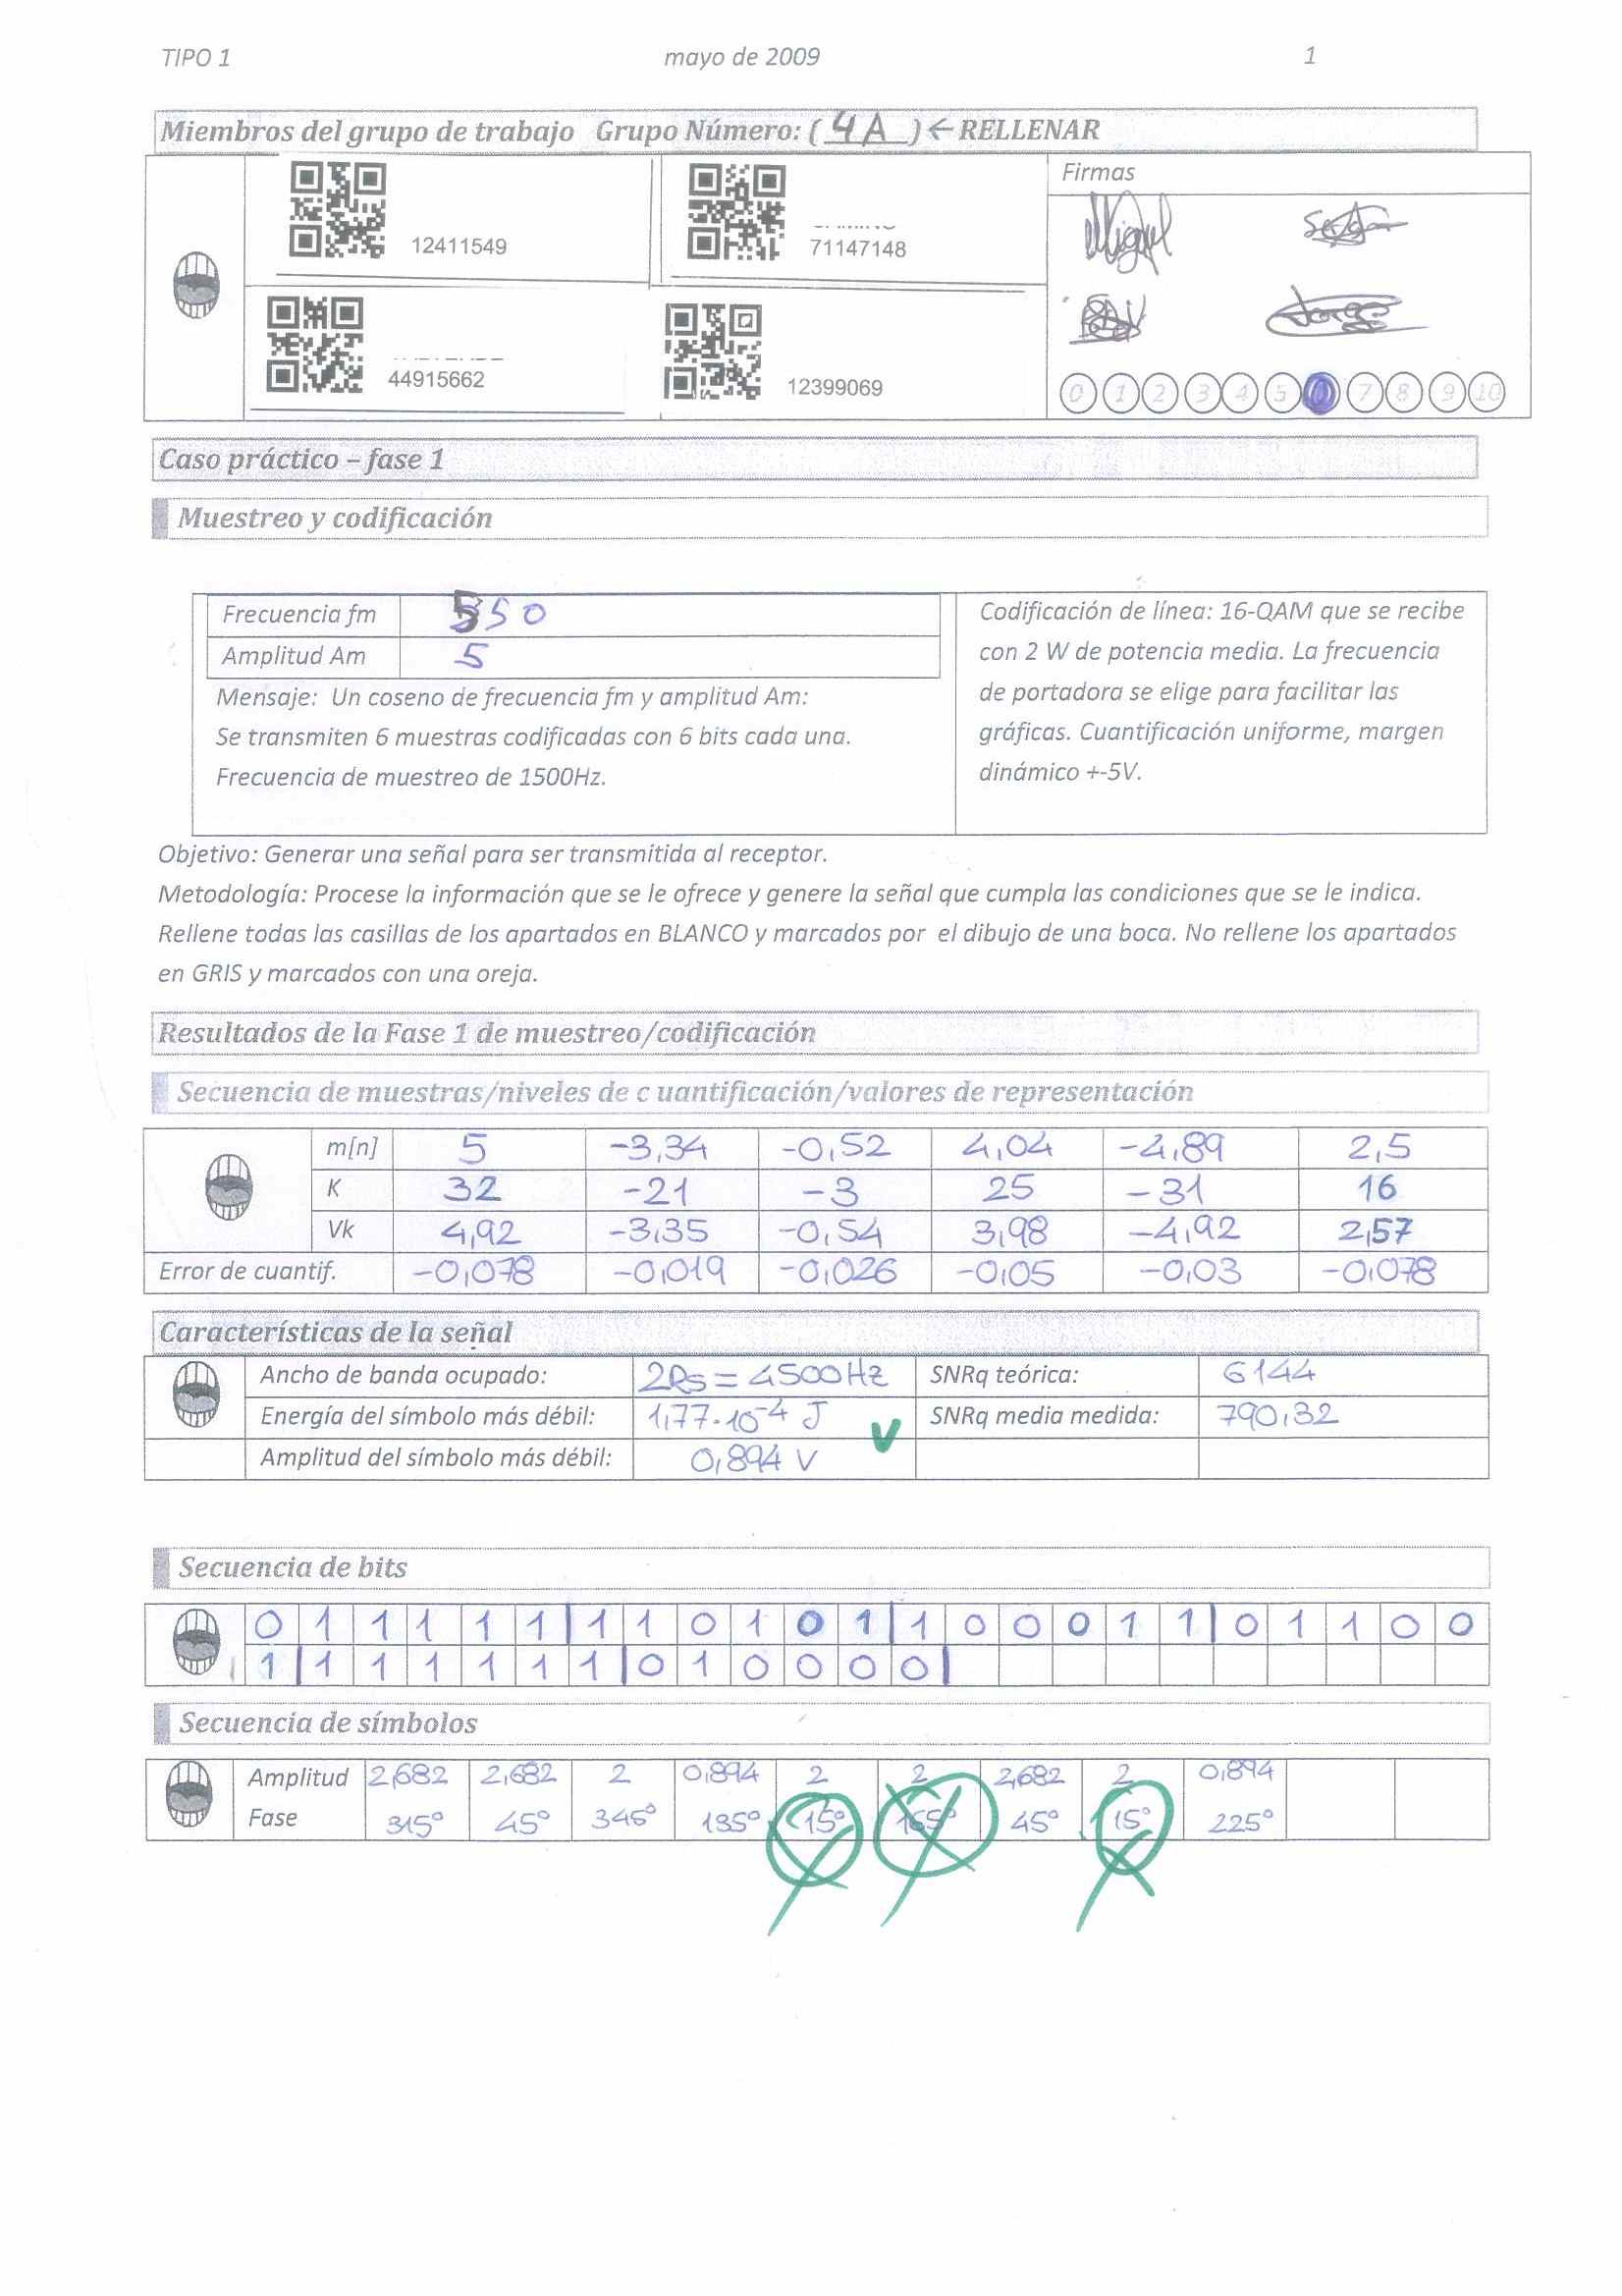 TIPO 1 mayo de 2009 1
Miembros del grupo de trabajo Grupo Número: ( 4A ) ← RELLENAR
12411549 71147148 Firmas
Miguel
44915662 12399069 Jorge
0 1 2 3 4 5 7 8 9 10
Caso práctico – fase 1
Muestreo y codificación
Frecuencia fm 550
Amplitud Am 5
Mensaje: Un coseno de frecuencia fm y amplitud Am:
Se transmiten 6 muestras codificadas con 6 bits cada una.
Frecuencia de muestreo de 1500Hz.
Codificación de línea: 16-QAM que se recibe
con 2 W de potencia media. La frecuencia
de portadora se elige para facilitar las
gráficas. Cuantificación uniforme, margen
dinámico +-5V.
Objetivo: Generar una señal para ser transmitida al receptor.
Metodología: Procese la información que se le ofrece y genere la señal que cumpla las condiciones que se le indica.
Rellene todas las casillas de los apartados en BLANCO y marcados por el dibujo de una boca. No rellene los apartados
en GRIS y marcados con una oreja.
Resultados de la Fase 1 de muestreo/codificación
Secuencia de muestras/niveles de c uantificación/valores de representación
m[n] 5 -3,34 -0,52 4,04 -4,89 2,5
K 32 -21 -3 25 -31 16
Vk 4,92 -3,35 -0,54 3,98 -4,92 2,57
Error de cuantif. -0,078 -0,019 -0,026 -0,05 -0,03 -0,078
Características de la señal
Ancho de banda ocupado: 2Rs = 4500 Hz SNRq teórica: 6144
Energía del símbolo más débil: 1,77·10-4 J SNRq media medida: 790,32
Amplitud del símbolo más débil: 0,894 V
Secuencia de bits
0 1 1 1 1 1 1 1 0 1 0 1 1 0 0 0 1 1 0 1 1 0 0
1 1 1 1 1 1 1 0 1 0 0 0 0
Secuencia de símbolos
Amplitud 2,682 2,682 2 0,894 2 2 2,682 2 0,894
Fase 315° 45° 345° 135° 15° 165° 45° 15° 225°